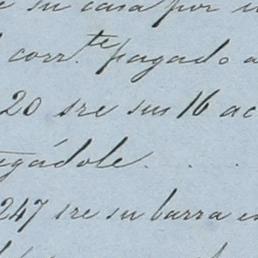 su casa por
corr.te pagado a
20 sre sus 16 ac
egádole . . .
247 sre su barra en